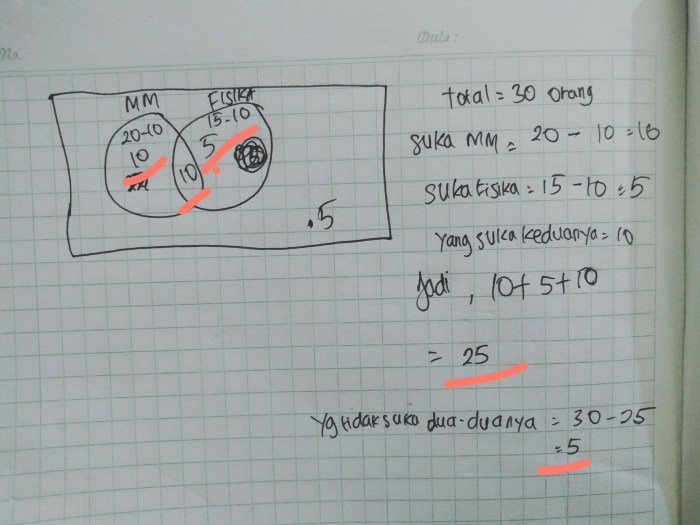 No.
Date:
MM
FISIKA
20-10
10
15-10
5
10
.5
total = 30 orang
suka MM = 20 - 10 = 10
suka fisika = 15 - 10 = 5
yang suka keduanya = 10
Jadi, 10 + 5 + 10
= 25
Yg tidak suka dua-duanya = 30 - 25
= 5